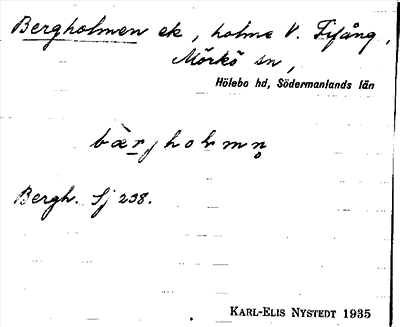 Bergholmen ek, holme V. Fifång,
Mörkö sn,
Hölebo hd, Södermanlands län
bærjholmn̥
Bergh. Sj 238.
KARL-ELIS NYSTEDT 1935